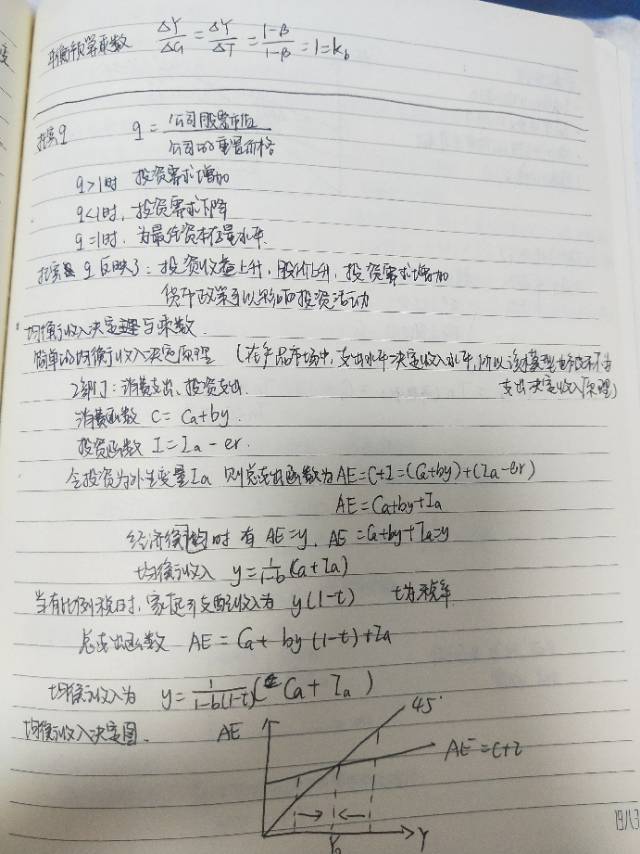 平衡预算乘数 ΔY/ΔG = ΔY/ΔT = (1-β)/(1-β) = 1 = k_b
托宾q q = 公司股票市值/公司的重置价格
q>1时 投资需求增加
q<1时, 投资需求下降
q=1时. 为最佳资本存量水平.
托宾 q 反映了: 投资收益上升, 股价上升, 投资需求增加
货币政策可以影响投资活动
均衡收入决定理与乘数.
简单的均衡收入决定原理 (在产品市场中, 支出水平决定收入水平, 所以该模型也
支出决定收入原理)
2部门: 消费支出、投资支出.
消费函数 C = Ca+by.
投资函数 I = Ia - er.
令投资为外生变量Ia 则总支出函数为AE=C+I=(Ca+by)+(Ia-er)
AE=Ca+by+Ia
经济衡均时有 AE=y, AE=Ca+by+Ia=y
均衡收入 y = 1/(1-b) (Ca+Ia)
当有比例税时, 家庭可支配收入为 y(1-t) t为税率
总支出函数 AE = Ca + by(1-t)+Ia
均衡收入为 y = 1/(1-b(1-t)) (Ca + Ia)
均衡收入决定图.
AE
45°
AE=C+I
Y